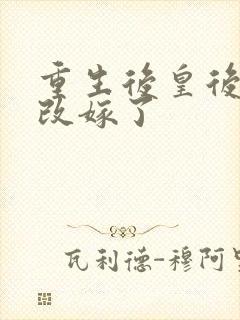 重生後皇後
改嫁了
瓦利德-穆阿